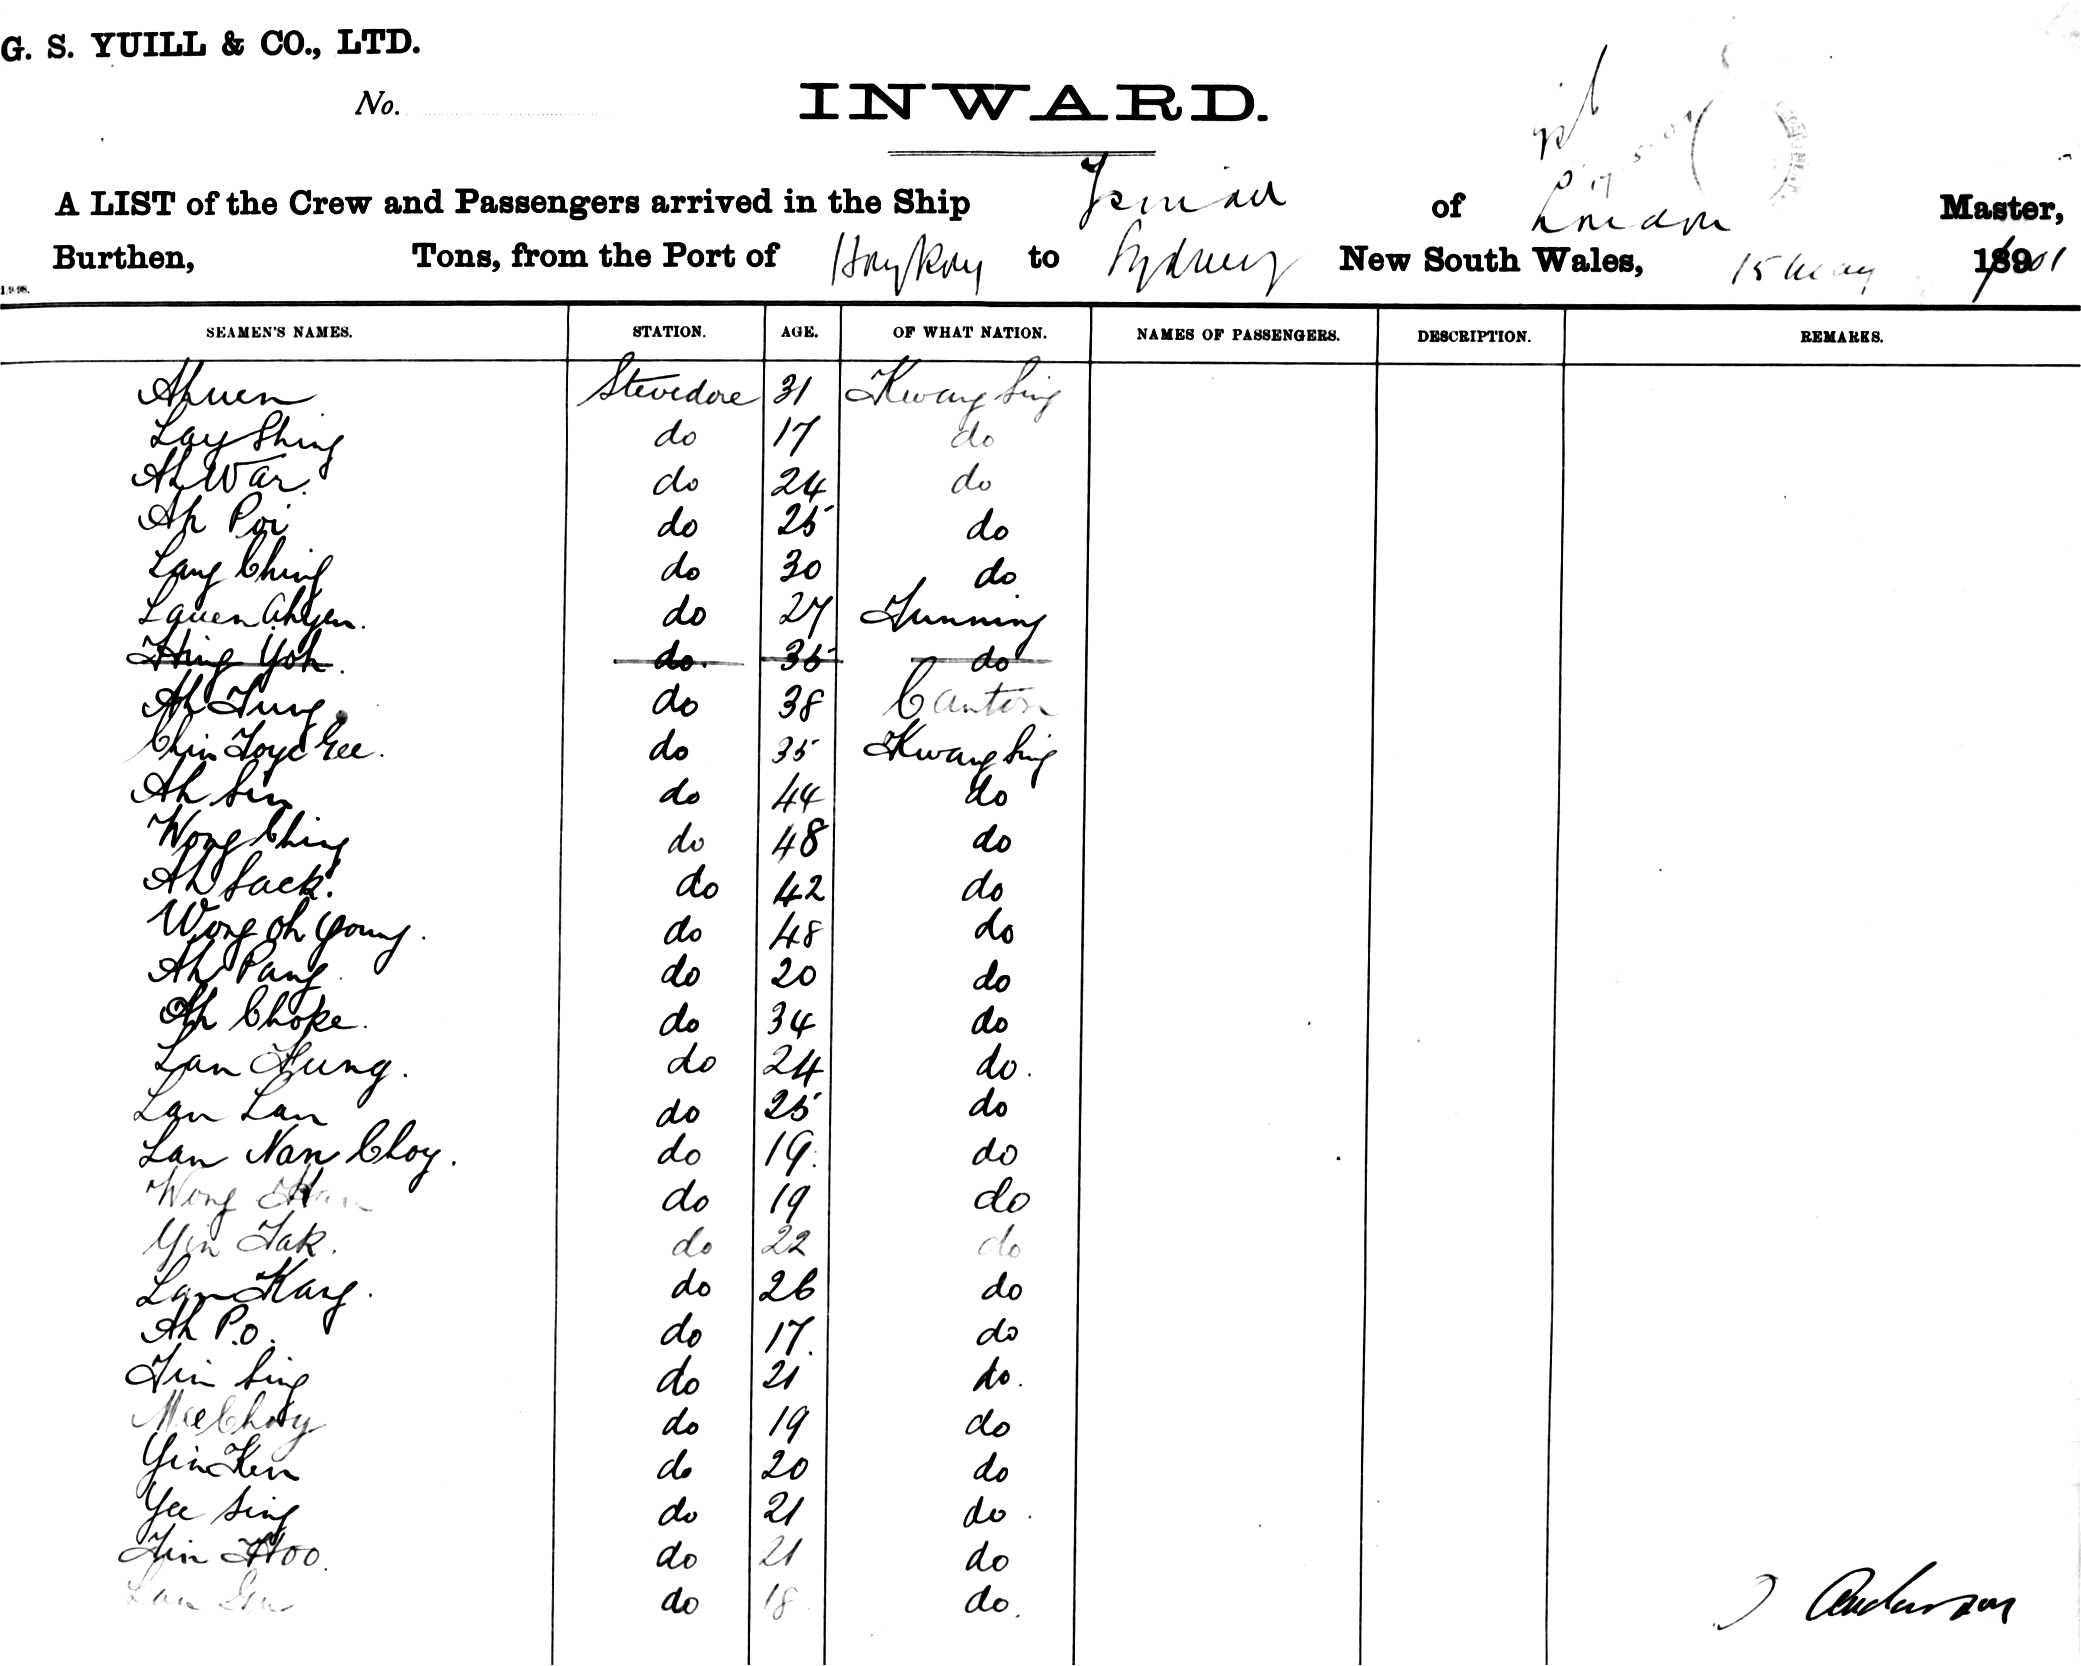 G. S. YUILL & CO., LTD.
No.
INWARD.
A LIST of the Crew and Passengers arrived in the Ship Tsinan of London Master,
Burthen, Tons, from the Port of Hong Kong to Sydney New South Wales, 15 May 1901
SEAMEN'S NAMES. STATION. AGE. OF WHAT NATION. NAMES OF PASSENGERS. DESCRIPTION. REMARKS.
Ahuen Stevedore 31 Kwang Sing
Lay Shing do 17 do
Ah War. do 24 do
Ah Poi do 25 do
Lang Ching do 30 do
Lauen Ahyen. do 27 Sunning
Hing Yoh. do. 35 do
Ah Tung. do 38 Canton
Chin Foye Gee. do 35 Kwang Sing
Ah Sun do 44 do
Wong Ching do 48 do
Ah Sack. do 42 do
Wong Oh Young. do 48 do
Ah Pang. do 20 do
Ah Choke. do 34 do
Lan Fung. do 24 do.
Lan Lan do 25 do
Lan Nan Choy. do 19. do
Wong Han do 19 do
Yin Tak. do 22 do
Lan Kang. do 26 do
Ah P.o. do 17. do
Tin Sing do 21 do.
Mee Choy do 19 do
Yin Ken do 20 do
Yee Sing do 21 do.
Tin Hoo. do 21 do
Lan do 18. do.
Anderson